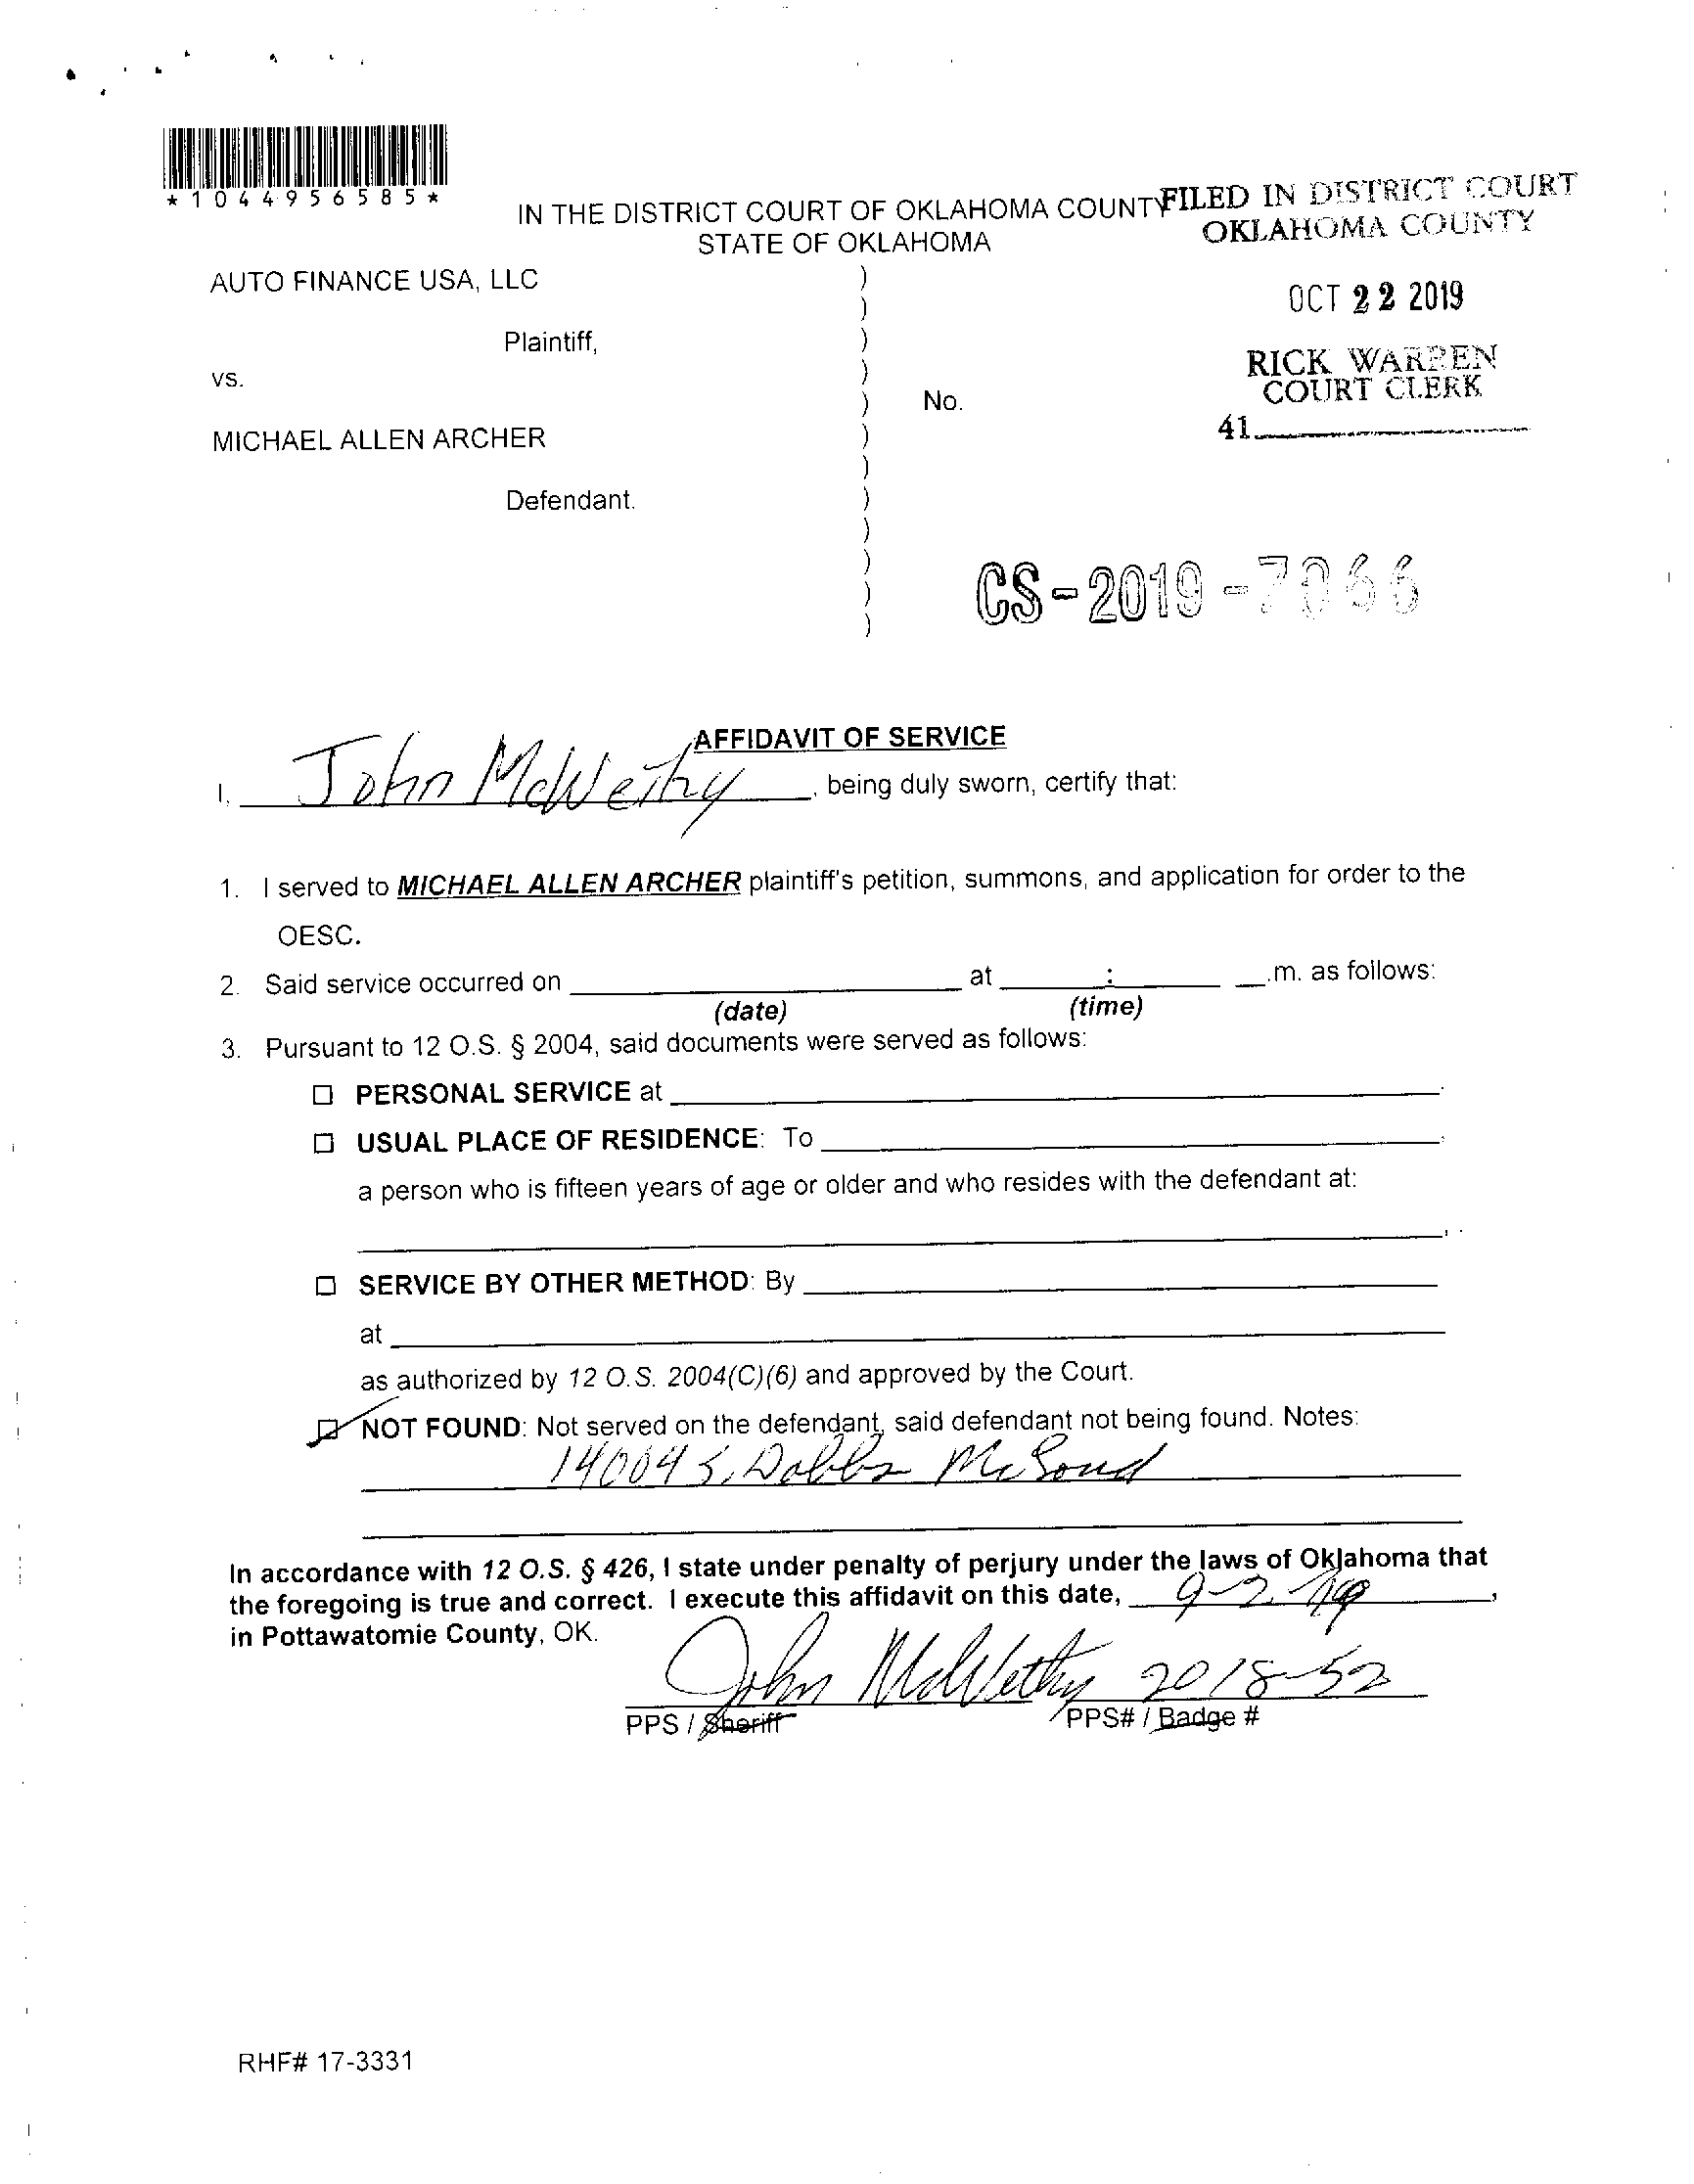 *1044956585*
IN THE DISTRICT COURT OF OKLAHOMA COUNTY
STATE OF OKLAHOMA
FILED IN DISTRICT COURT
OKLAHOMA COUNTY
OCT 22 2019
RICK WARREN
COURT CLERK
41
AUTO FINANCE USA, LLC
Plaintiff,
vs.
MICHAEL ALLEN ARCHER
Defendant.
No.
CS-2019-7066
AFFIDAVIT OF SERVICE
I, John McWethy, being duly sworn, certify that:
1. I served to MICHAEL ALLEN ARCHER plaintiff's petition, summons, and application for order to the
OESC.
2. Said service occurred on at : .m. as follows:
(date) (time)
3. Pursuant to 12 O.S. § 2004, said documents were served as follows:
PERSONAL SERVICE at
USUAL PLACE OF RESIDENCE: To
a person who is fifteen years of age or older and who resides with the defendant at:
SERVICE BY OTHER METHOD: By
at
as authorized by 12 O.S. 2004(C)(6) and approved by the Court.
NOT FOUND: Not served on the defendant, said defendant not being found. Notes:
14004 S. Dobbs
In accordance with 12 O.S. § 426, I state under penalty of perjury under the laws of Oklahoma that
the foregoing is true and correct. I execute this affidavit on this date, 9-2-19,
in Pottawatomie County, OK.
John McWethy 2018-52
PPS / Sheriff PPS# / Badge #
RHF# 17-3331